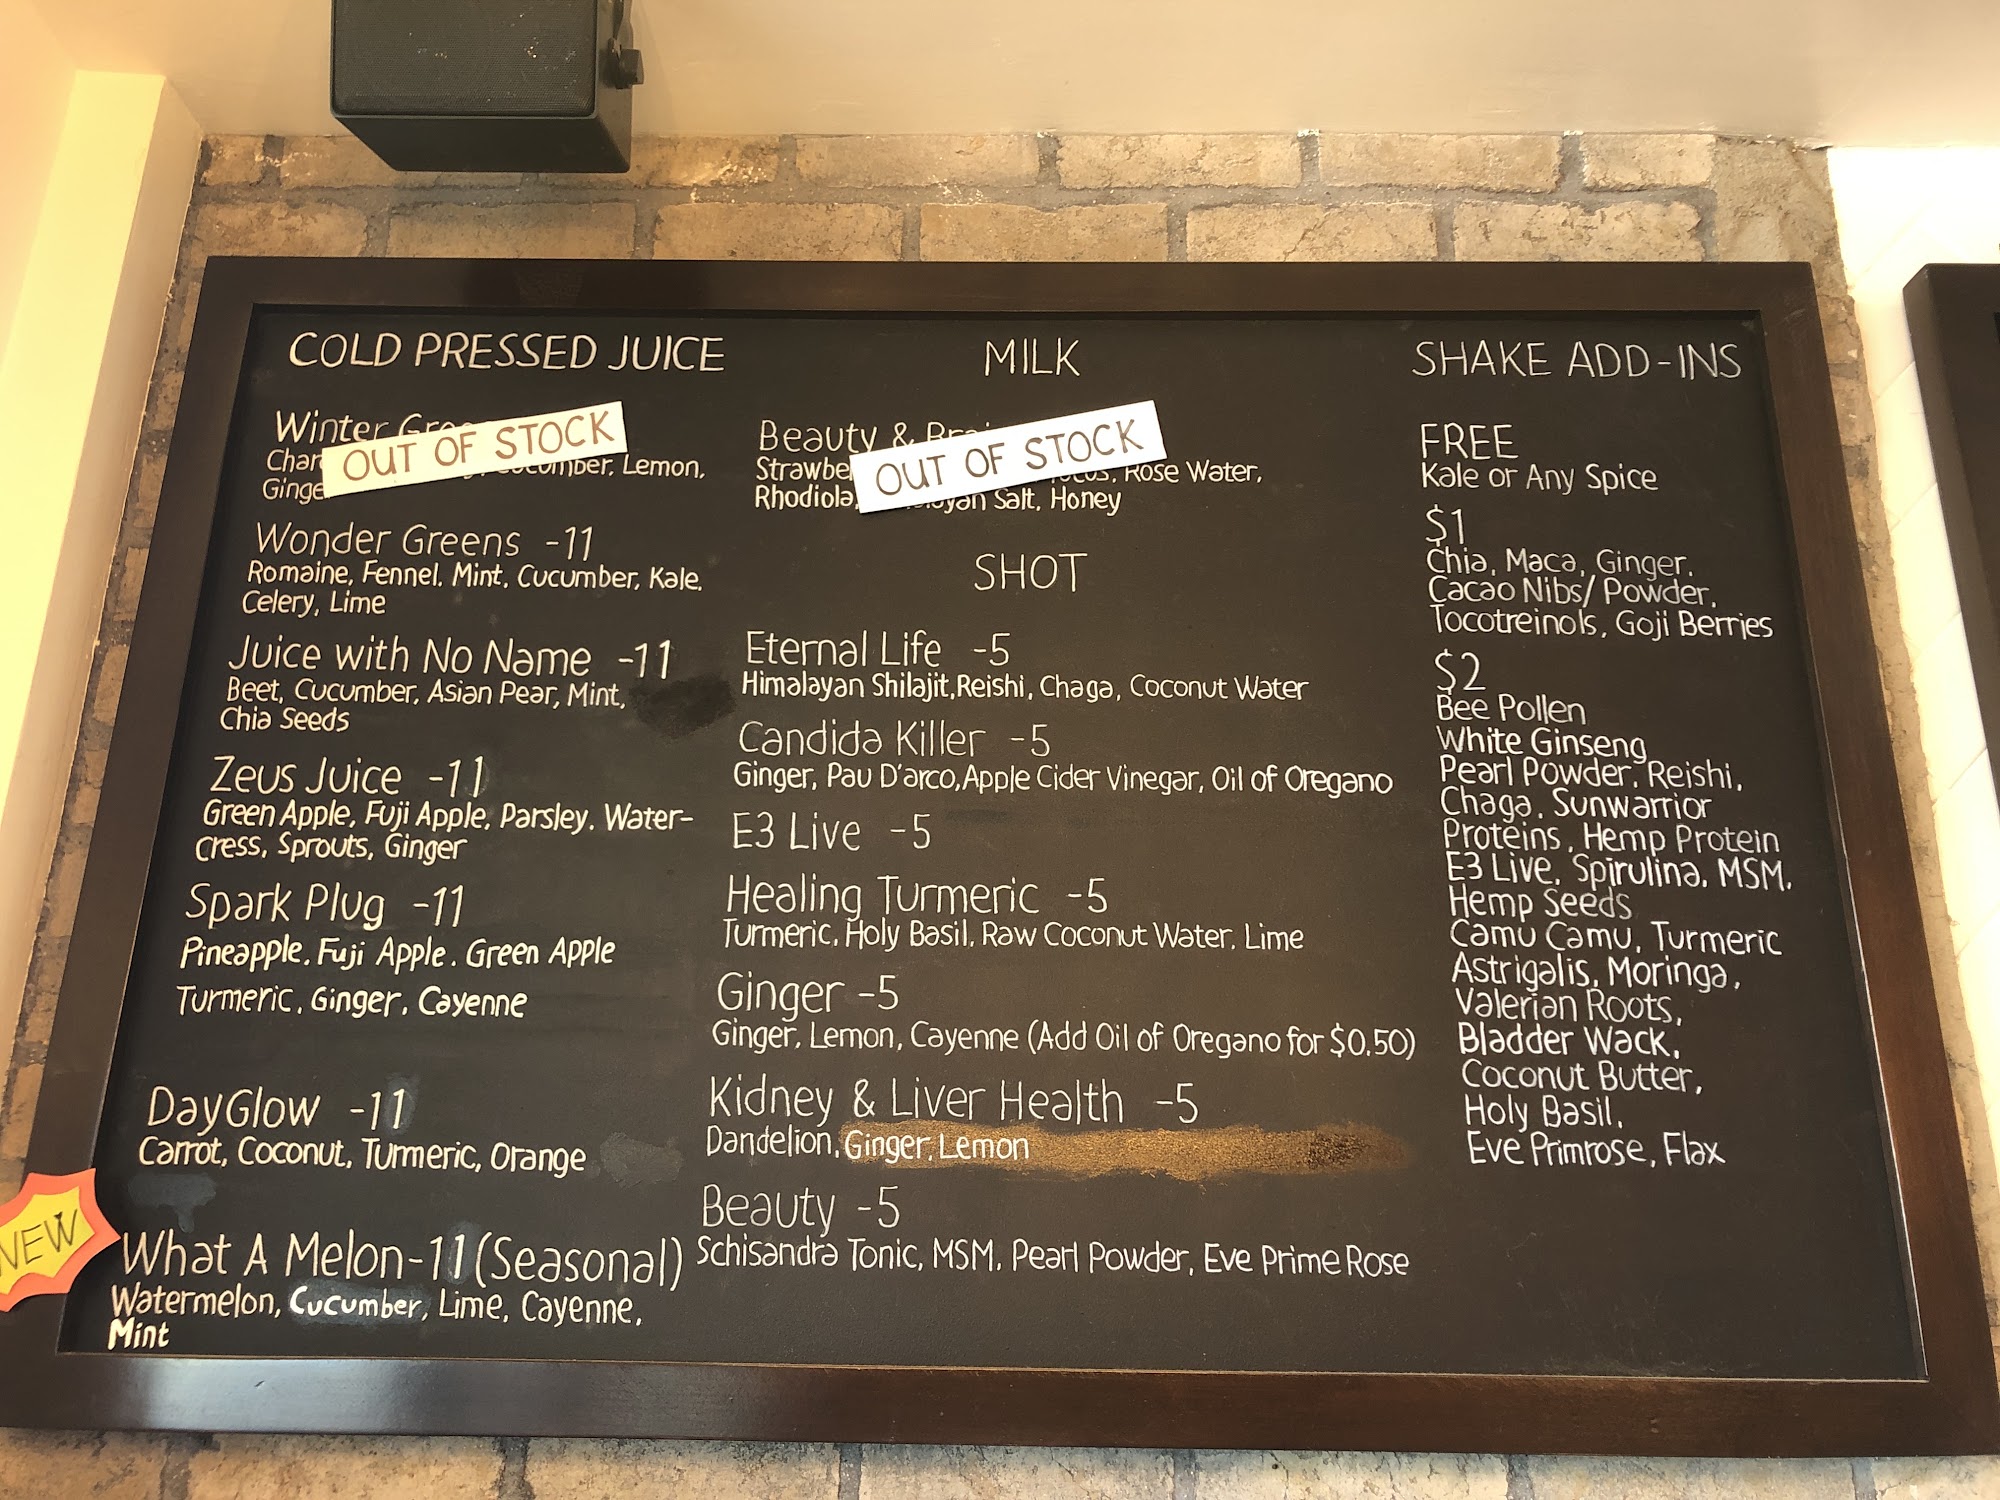 COLD PRESSED JUICE
Winter
OUT OF STOCK
Lemon,
Wonder Greens -11
Romaine, Fennel. Mint. Cucumber, Kale.
Celery, Lime
Juice with No Name -11
Beet, Cucumber, Asian Pear, Mint,
Chia Seeds
Zeus Juice -11
Green Apple, Fuji Apple, Parsley. Water-
cress, Sprouts, Ginger
Spark Plug -11
Pineapple. Fuji Apple. Green Apple
Turmeric. Ginger. Cayenne
DayGlow -11
Carrot, Coconut, Turmeric, Orange
NEW
What A Melon-11 (Seasonal)
Watermelon, Cucumber, Lime, Cayenne,
Mint
MILK
Beauty &
OUT OF STOCK
Rose Water,
Rhodiola, Salt, Honey
SHOT
Eternal Life -5
Himalayan Shilajit, Reishi, Chaga, Coconut Water
Candida Killer -5
Ginger, Pau D'arco, Apple Cider Vinegar, Oil of Oregano
E3 Live -5
Healing Turmeric -5
Turmeric, Holy Basil, Raw Coconut Water, Lime
Ginger -5
Ginger, Lemon, Cayenne (Add Oil of Oregano for $0.50)
Kidney & Liver Health -5
Dandelion, Ginger, Lemon
Beauty -5
Schisandra Tonic, MSM, Pearl Powder, Eve Prime Rose
SHAKE ADD-INS
FREE
Kale or Any Spice
$1
Chia, Maca, Ginger,
Cacao Nibs/ Powder,
Tocotreinols, Goji Berries
$2
Bee Pollen
White Ginseng
Pearl Powder, Reishi,
Chaga, Sunwarrior
Proteins, Hemp Protein
E3 Live, Spirulina, MSM,
Hemp Seeds
Camu Camu, Turmeric
Astrigalis, Moringa,
Valerian Roots,
Bladder Wack,
Coconut Butter,
Holy Basil,
Eve Primrose, Flax